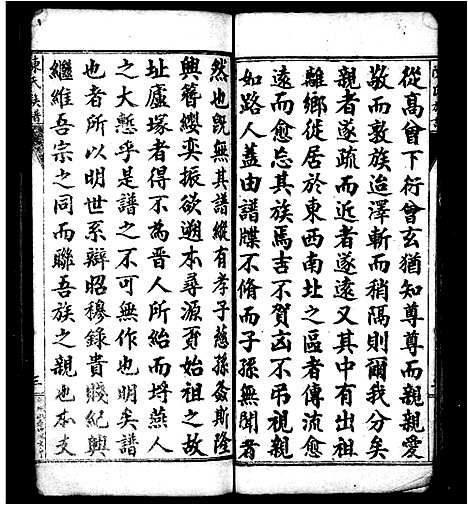 從高曾下衍曾玄猶知尊尊而親親愛
敬而敦族迨澤斬而稍隔則爾我分矣
親者遂疏而近者遂遠又其中有出者
離鄉徙居於東西南北之區者傳流愈
遠而愈忘其族焉吉不賀凶不弔視親
如路人蓋由譜牒不脩而子孫無聞者
然也旣無其譜縱有孝子慈孫螽斯隆
興簪纓奕振欲遡本尋源覔始祖之故
址廬塚者得不為晋人所紿而埓燕人
之大慙乎是譜之不可無作也明矣譜
也者所以明世系辯昭穆錄貴賤紀興
繼維吾宗之同而聯吾族之親也本支
陳氏族譜
三